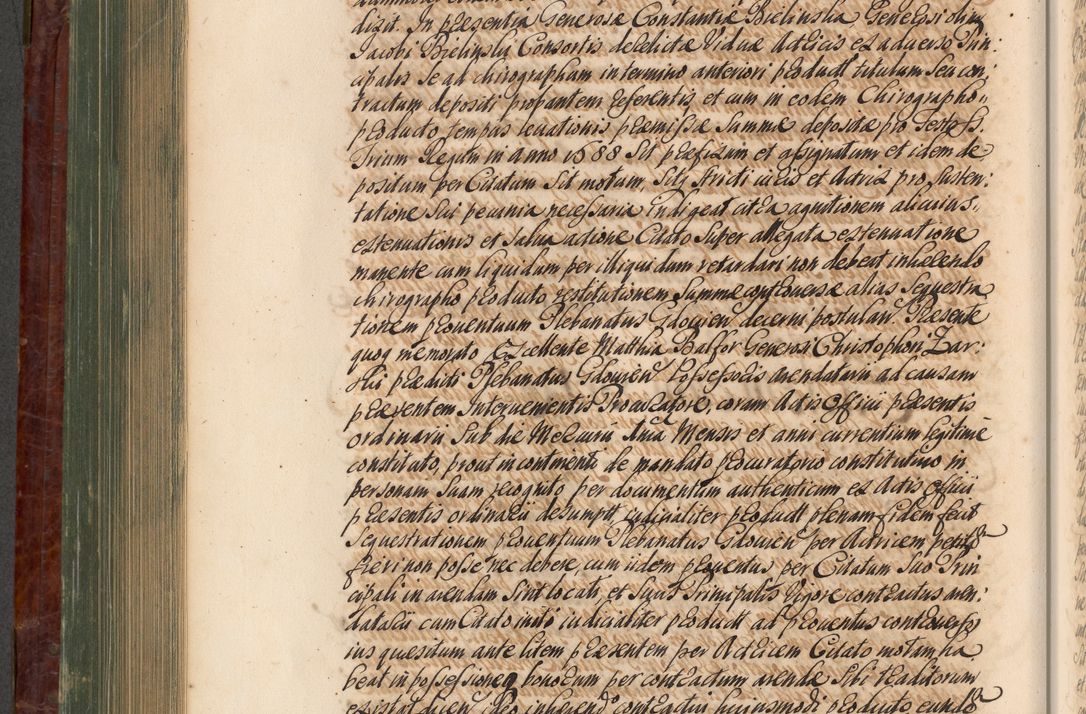 dixit. In præsentia Generosæ Constantiæ Bielinska Generosi olim
Jacobi Bielinsky Consortis derelictæ Viduæ Actricis ex adverso Prin:
cipalis se ad chirographum in termino anteriori productt titulum seu con:
tractum depositi probantem referentis et cum in eodem Chirographo
producto tempus levationis præmissæ Summæ depositæ pro festo SS.
Trium Regum in anno 1688 Sit præfixum et assignatum et idem de
positum per Citatum Sit motum, Sitq stricti iuris et Actrix pro susten:
tatione Sui pecunia necessaria indigeat citra agnitionem alicuius
extenuationis et salva actione Citato Super allegata extenuatione
manente cum liquidum per illiquidum retardari non debeat inhærendo
chirographo producto restitutionem Summæ controversæ alias Sequestra
tionem proventuum Plebanatus Gdovien decerni postulavi Præsente
quoq memorato Excellente Matthia Balfor Generosi Christophori Zar:
Hii prædicti Plebanatus Gdovien Possessoris arendatarii ad causam
præsentem Intervenientis Procuratore, coram Actis Officii præsentis
ordinarii Sub die Mercurii Mensis et anni currentium legitime
constituto, prout in continenti de mandato procuratorio constitutivo in
personam Suam recognito per documentum authenticum ex Actis officii
præsentis ordinarii desumptt iudicialiter productt plenam fidem fecit
Sequestrationem proventuum Plebanatus Gdovien per Actricem petit
fieri non posse nec debere, cum iidem proventus per Citatum Suo Prin
cipali in arendam Sint locati, et Suus Principalis Vigore contractus aren:
datarii cum Citato initi iudicialiter productt ad proventus controvers
ius quæsitum ante litem præsentem per Actricem Citato motam ha
beat in possessione bonorum per contractum arendæ Sibi traditorum
existat dicen ideo inhærend contractui huiusmodi producto eund